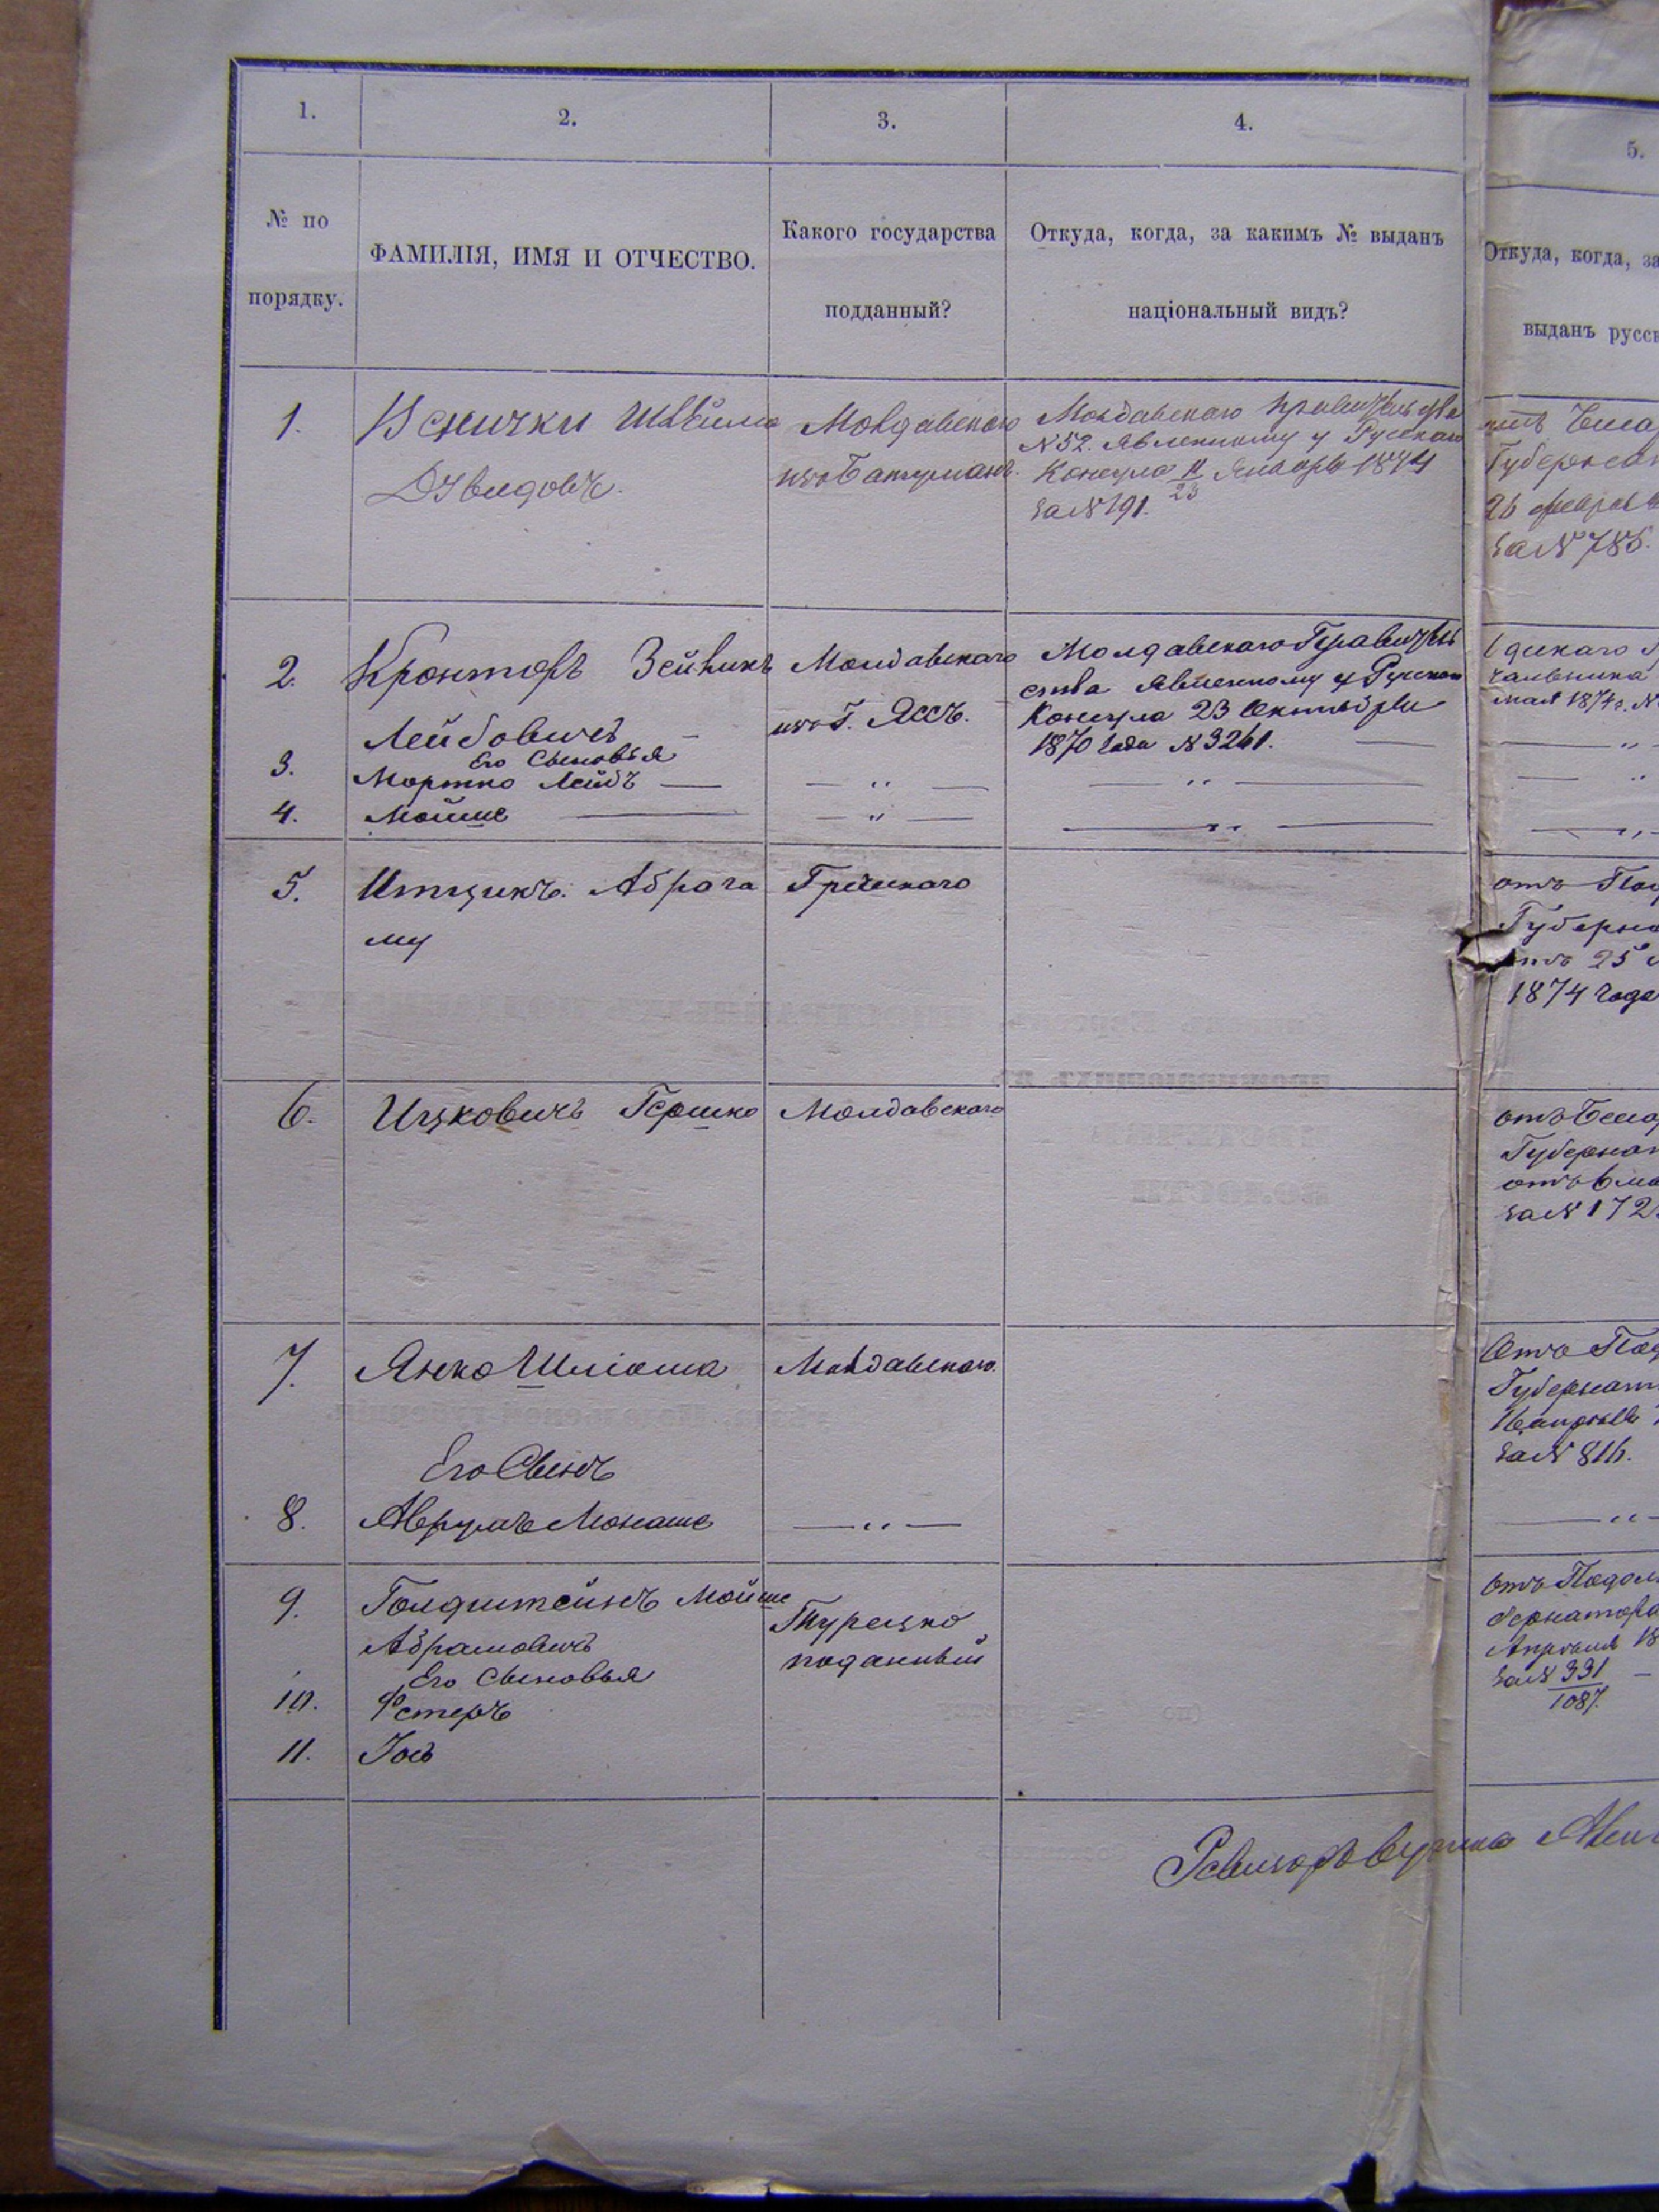 1.
2.
3.
4.
5.
№ по
порядку.
ФАМИЛІЯ, ИМЯ И ОТЧЕСТВО.
Какого государства
подданный?
Откуда, когда, за какимъ № выданъ
національный видъ?
Откуда, когда, за
выданъ русск
1.
Молдавскаго
Молдавскаго
N 52. Явленному у Рускаго
Консула 11/23 Января 1874
за N 191.
Губернат
26
за N 785.
2.
Кронторъ Зейвикъ
Лейбовичъ
Молдавскаго
изъ Г. Яссъ.
Молдавскаго Правитель
ства Явленному у Русскаго
Консула 23 Октября
1870 Года N 3261.
мая 1874 г. N
Его Сыновья
3.
Мортко Лейбъ — — „ — — „ — — „
4.
Мойше — — „ — — „ — — „ -
5.
Ицикъ Абрага
му
Греческаго
отъ Под
Губерна
отъ 25
1874 года
6.
Ицковичъ Гершко
Молдавскаго
отъ Бесса
Губернат
отъ 6 ма
за N 172
7.
Янко Шліома
Молдавскаго.
Отъ Под
Губернат
за N 816.
Его Сынъ
8.
Аврумъ Монаше
— „ —
— „ —
9.
Голдштейнъ Мойше
Абрамовичъ
Турецко
поданный
отъ Подол
бернатора
Апреля 18
за N 331/1087.
Его Сыновья
10.
Фстеръ
11.
Іось